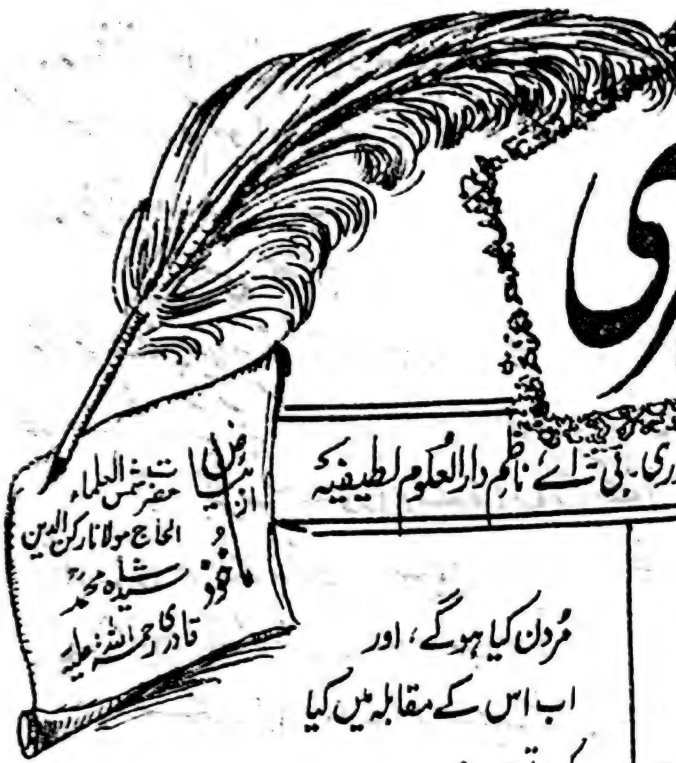 دری۔ بی اے ناظم دارالعلوم لطیفیہ
ماخوذ از بیاض
حضرت شمس العلماء
الحاج مولانا رکن الدین
سید شاہ محمد
قادری رحمۃ اللہ علیہ
مُردن کیا ہوگے، اور
اب اس کے مقابلہ میں کیا